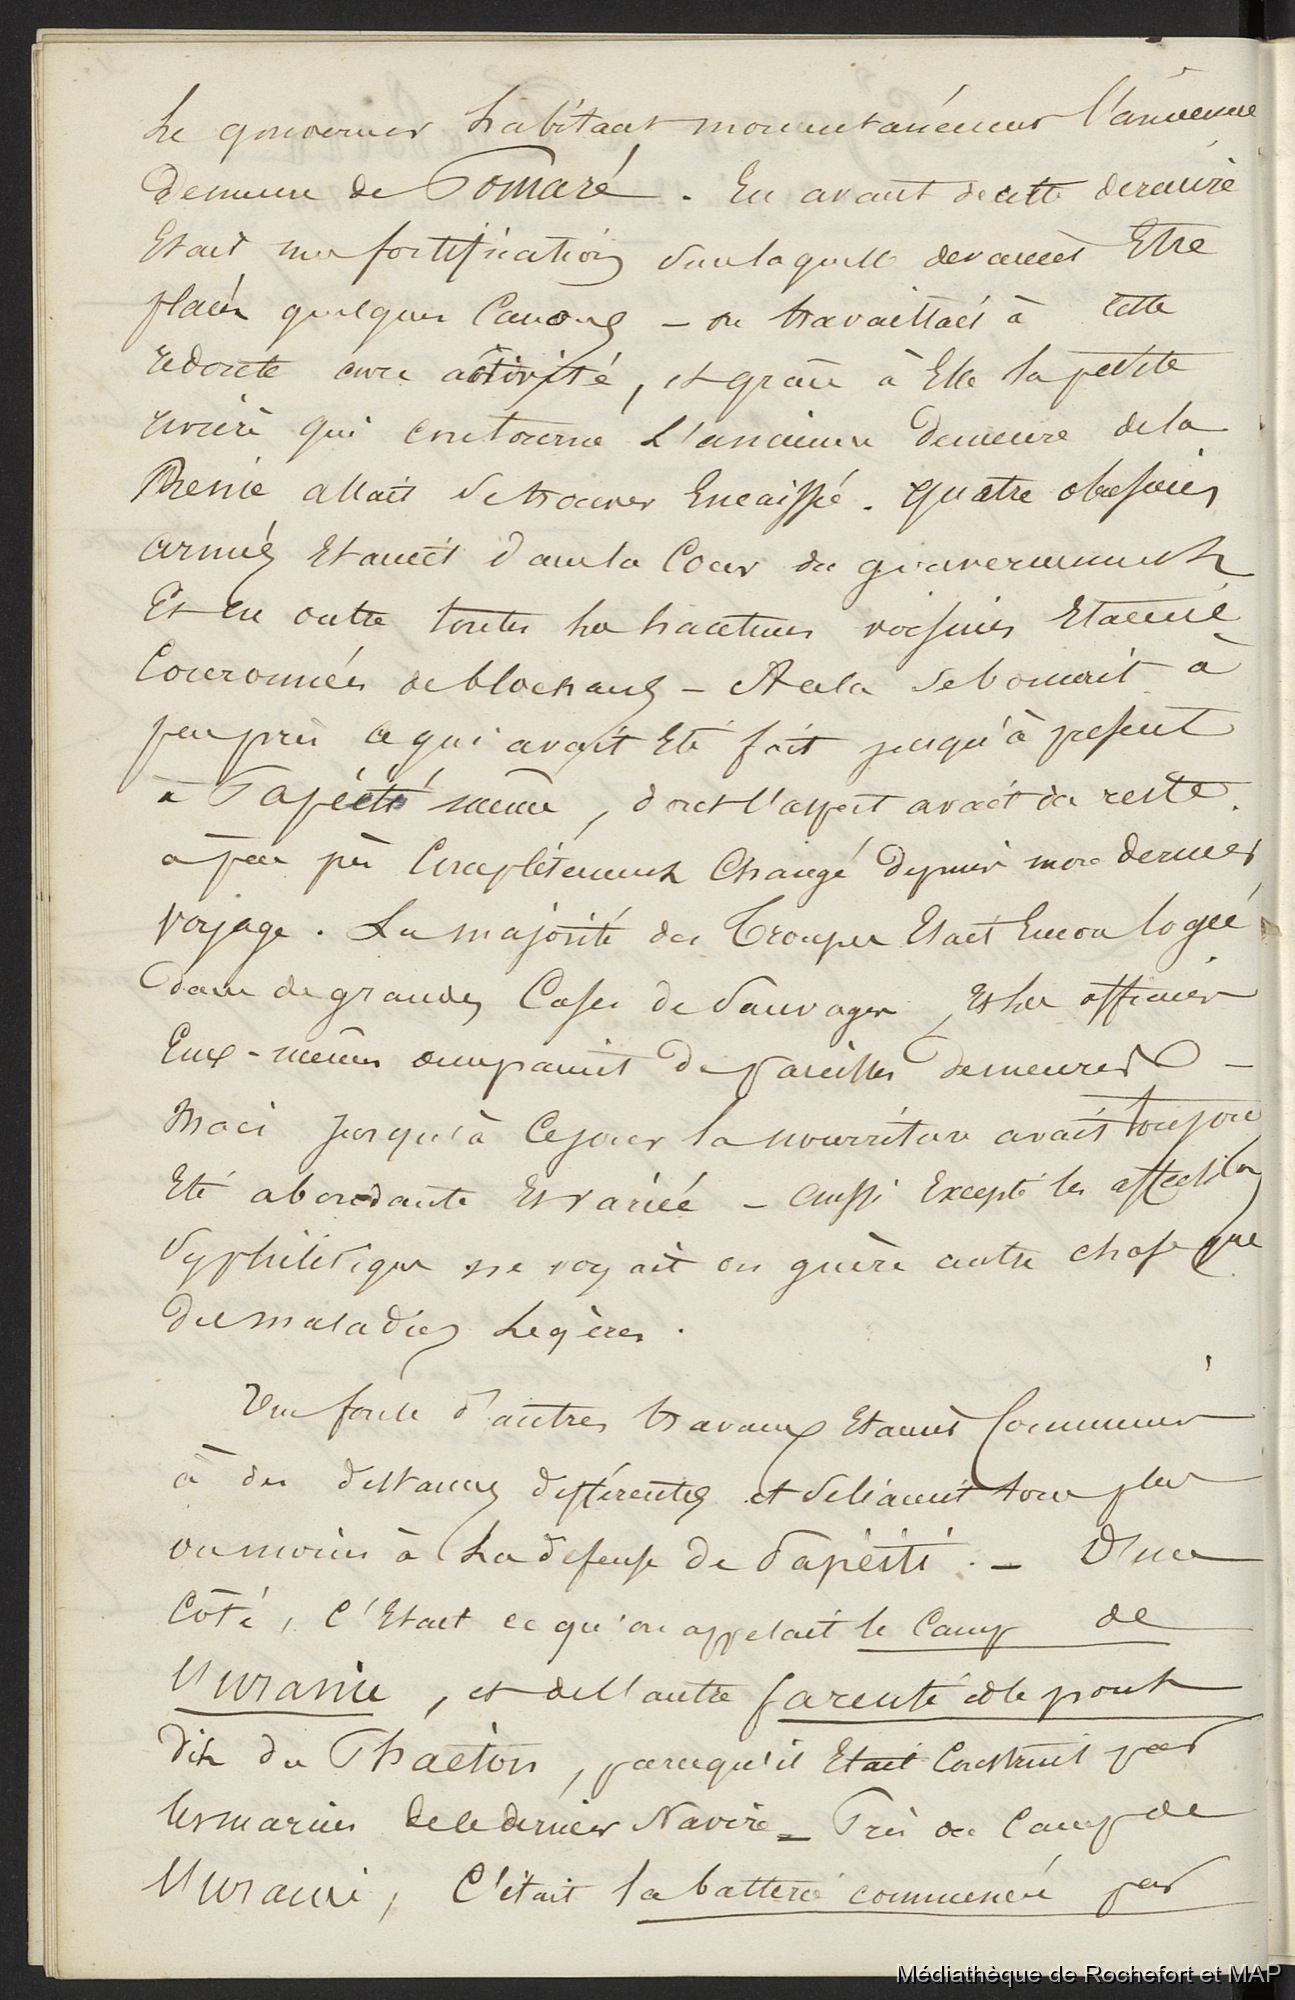 Le gouverneur habitait momentanément l'ancienne
demeure de Pomaré. En avant de cette dernière
Etait une fortification sur laquelle devaient Etre
placés quelques Canons - on travaillait à cette
redoute avec activité, et grace à Elle la petite
rivière qui contourne L'ancienne demeure de la
Reine allait se trouver Encaissée. Quatre obusiers
armés Etaient dans la Cour du gouvernement
Et en outre toutes les hauteurs voisines Etaient
Couronnées de blockhaus - A cela se bornait à
peu près ce qui avait Eté fait jusqu'à present
à Papéété même, dont l'aspect avait du reste
à peu près Complétement Changé depuis mon dernier
voyage. La majorité des Troupes Etait Encore logée
dans de grandes Cases de Sauvages, Et les officiers
Eux-mêmes occupaient de pareilles demeures -
Mais jusqu'à Ce jour la nourriture avait toujours
Eté abondante Et variée - aussi Excepté les affections
Syphilitiques ne voyait on guère autre chose que
des maladies Legères.
Une foule d'autres travaux Etaient Commencés
à des distances différentes et se liaient tous plus
ou moins à La defense de Papéiti. - D'un
Côté, C'Etait ce qu'on appelait le Camp de
l'Uranie, et de l'autre Farenté et le pont
dit du Phaéton, parcequ'il Etait Construit par
les marins de ce dernier Navire - Près du Camp de
l'Uranie, C'était la batterie commencée par
Médiathèque de Rochefort et MAP